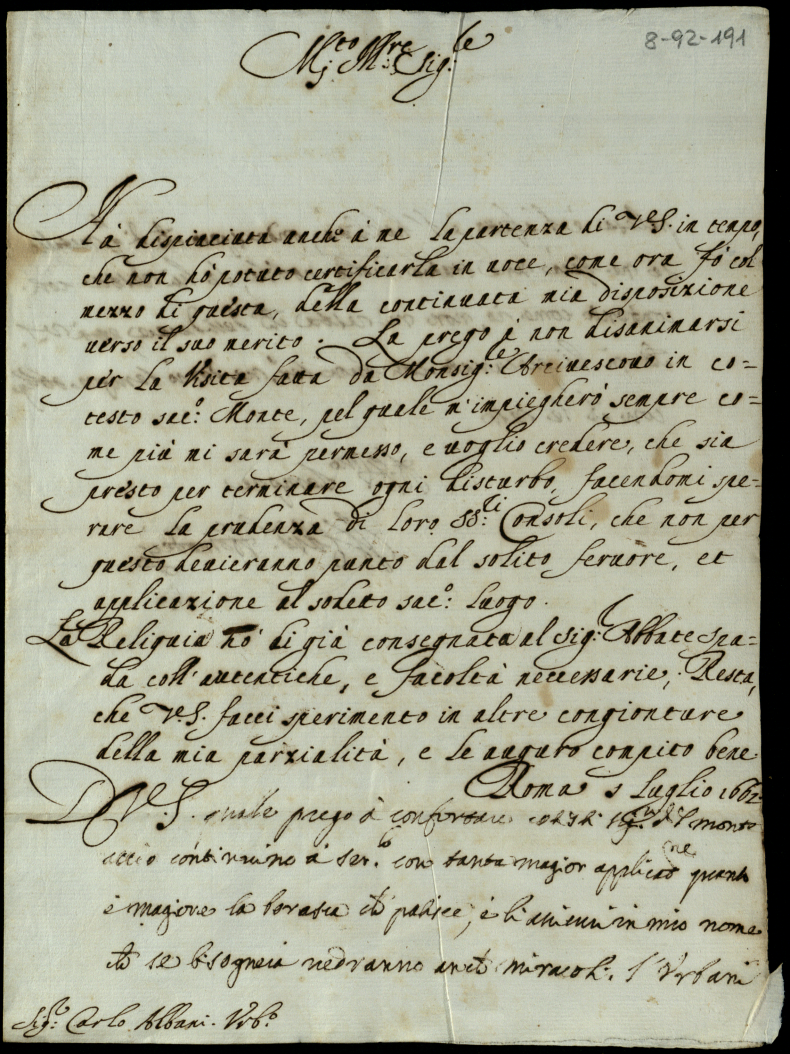 8-92-191
M.to Ill.re Sig.le
Hà dispiaciuta anche à me la partenza di V.S. in tempo,
che non hò potuto certificarla in uoce, come ora fò col
mezzo di questa, della continuata mia disposizione
uerso il suo merito. La prego à non disanimarsi
per la Visita fatta da Monsig.re Arciuescouo in co=
testo sac.o Monte, pel quale m'impiegherò sempre co=
me più mi sarà permesso, e uoglio credere, che sia
presto per terminare ogni disturbo, facendomi spe=
rare la prudenza di loro SS.ri Consoli, che non per
questo deuieranno punto dal solito feruore, et
applicazione al sodetto sac.o luogo.
La Reliquia hò di già consegnata al Sig.r Abbate Spa=
da coll'autentiche, e facoltà necessarie; Resta,
che V.S. facci sperimento in altre congionture
della mia parzialità, e le auguro compito bene
Roma 5 Luglio 1662
D V.S. quale prego à confortare li del monte
acciò continuino à ser. con tanta magior applicaone quanto
è magiore la borasca ch patisce, e li animi in mio nome
ch se bisogneia uedranno anch miracoli. l'Urbani
Sig.r Carlo Albani. Urb.o